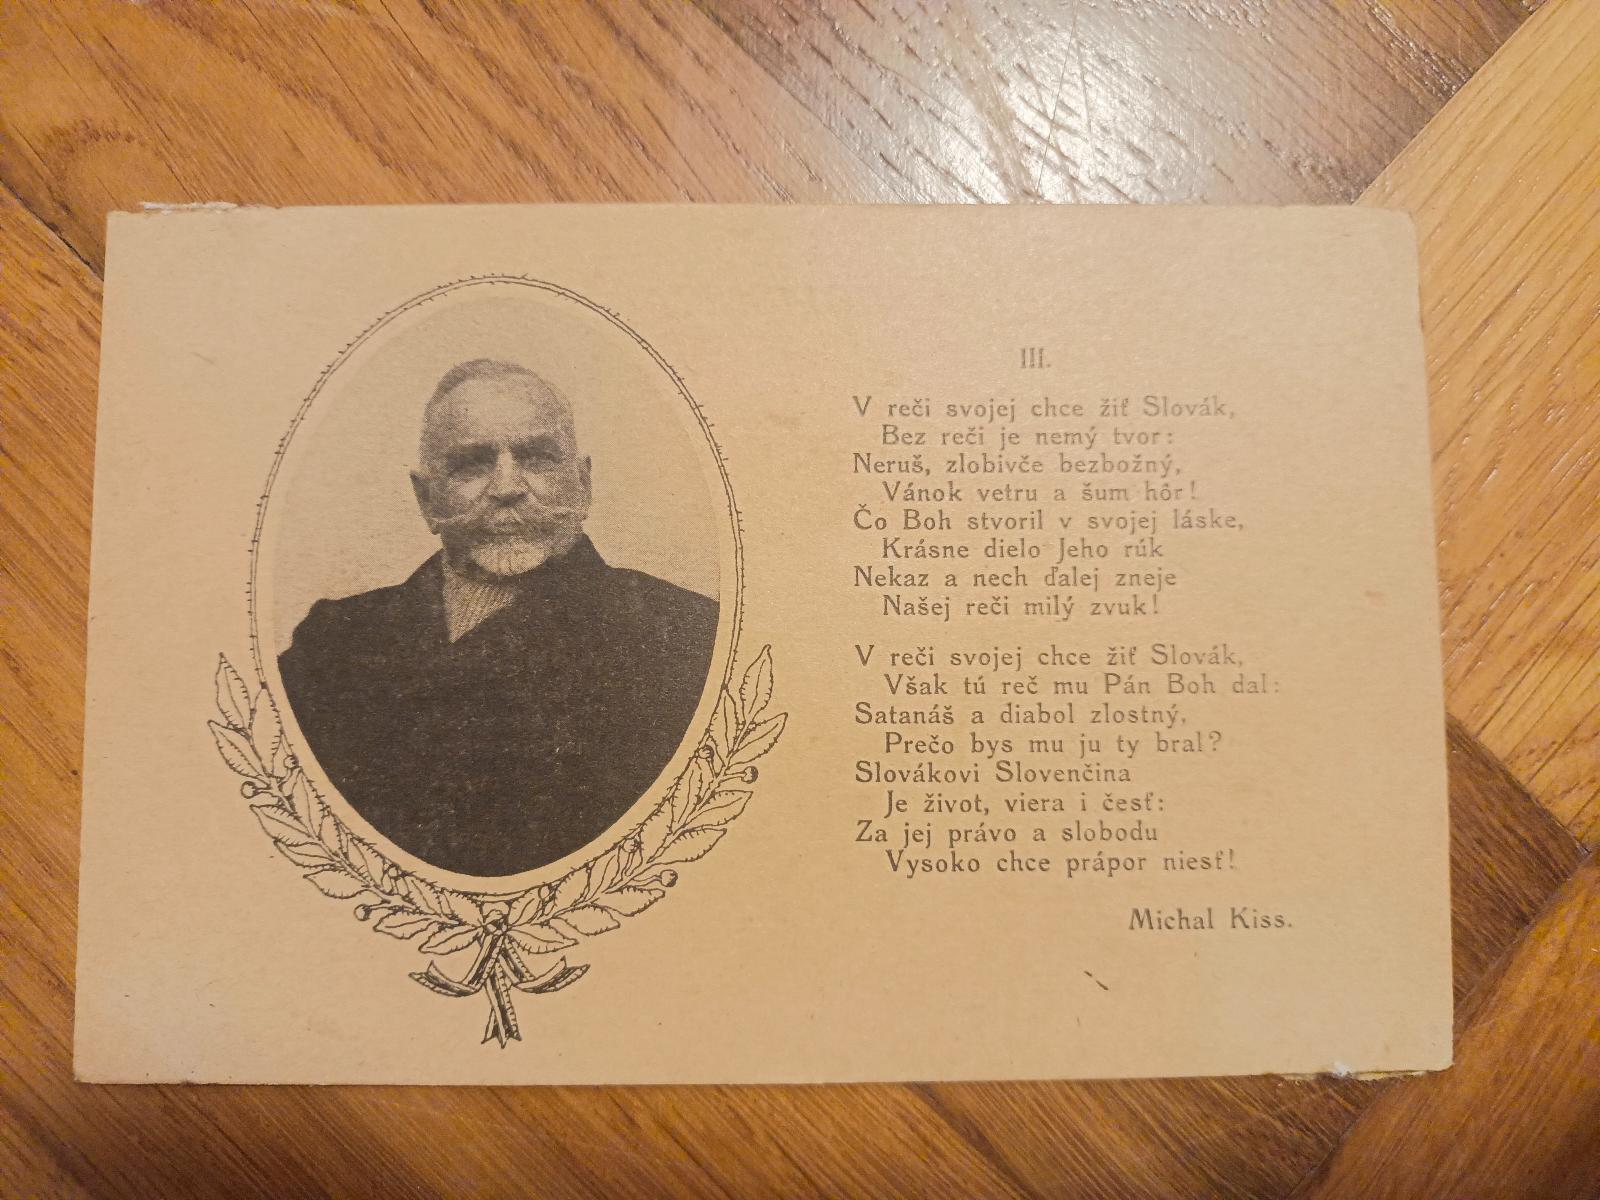 III.
V reči svojej chce žiť Slovák,
Bez reči je nemý tvor:
Neruš, zlobivče bezbožný,
Vánok vetru a šum hôr!
Čo Boh stvoril v svojej láske,
Krásne dielo Jeho rúk
Nekaz a nech ďalej zneje
Našej reči milý zvuk!
V reči svojej chce žiť Slovák,
Však tú reč mu Pán Boh dal:
Satanáš a diabol zlostný,
Prečo bys mu ju ty bral?
Slovákovi Slovenčina
Je život, viera i česť:
Za jej právo a slobodu
Vysoko chce prápor niesť!
Michal Kiss.